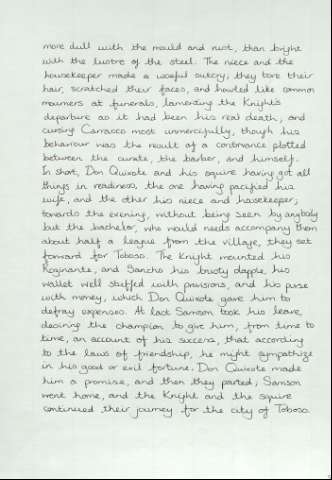 more dull with the mould and rust, than bright
with the lustre of the steel. The niece and the
housekeeper made a woeful outcry; they tore their
hair, scratched their faces, and howled like common
mourners at funerals, lamenting the Knight's
departure as it had been his real death; and
cursing Carrasco most unmercifully, though his
behaviour was the result of a contrivance plotted
between the curate, the barber, and himself.
In short, Don Quixote and his squire having got all
things in readiness, the one having pacified his
wife, and the other his niece and housekeeper;
towards the evening, without being seen by anybody
but the bachelor, who would needs accompany them
about half a league from the village, they set
forward for Toboso. The Knight mounted his
Rozinante, and Sancho his trusty dapple, his
wallet well stuffed with provisions, and his purse
with money, which Don Quixote gave him to
defray expenses. At last Samson took his leave,
desiring the champion to give him, from time to
time, an account of his success, that according
to the laws of friendship, he might sympathize
in his good or evil fortune. Don Quixote made
him a promise, and then they parted; Samson
went home, and the Knight and the squire
continued their journey for the city of Toboso.